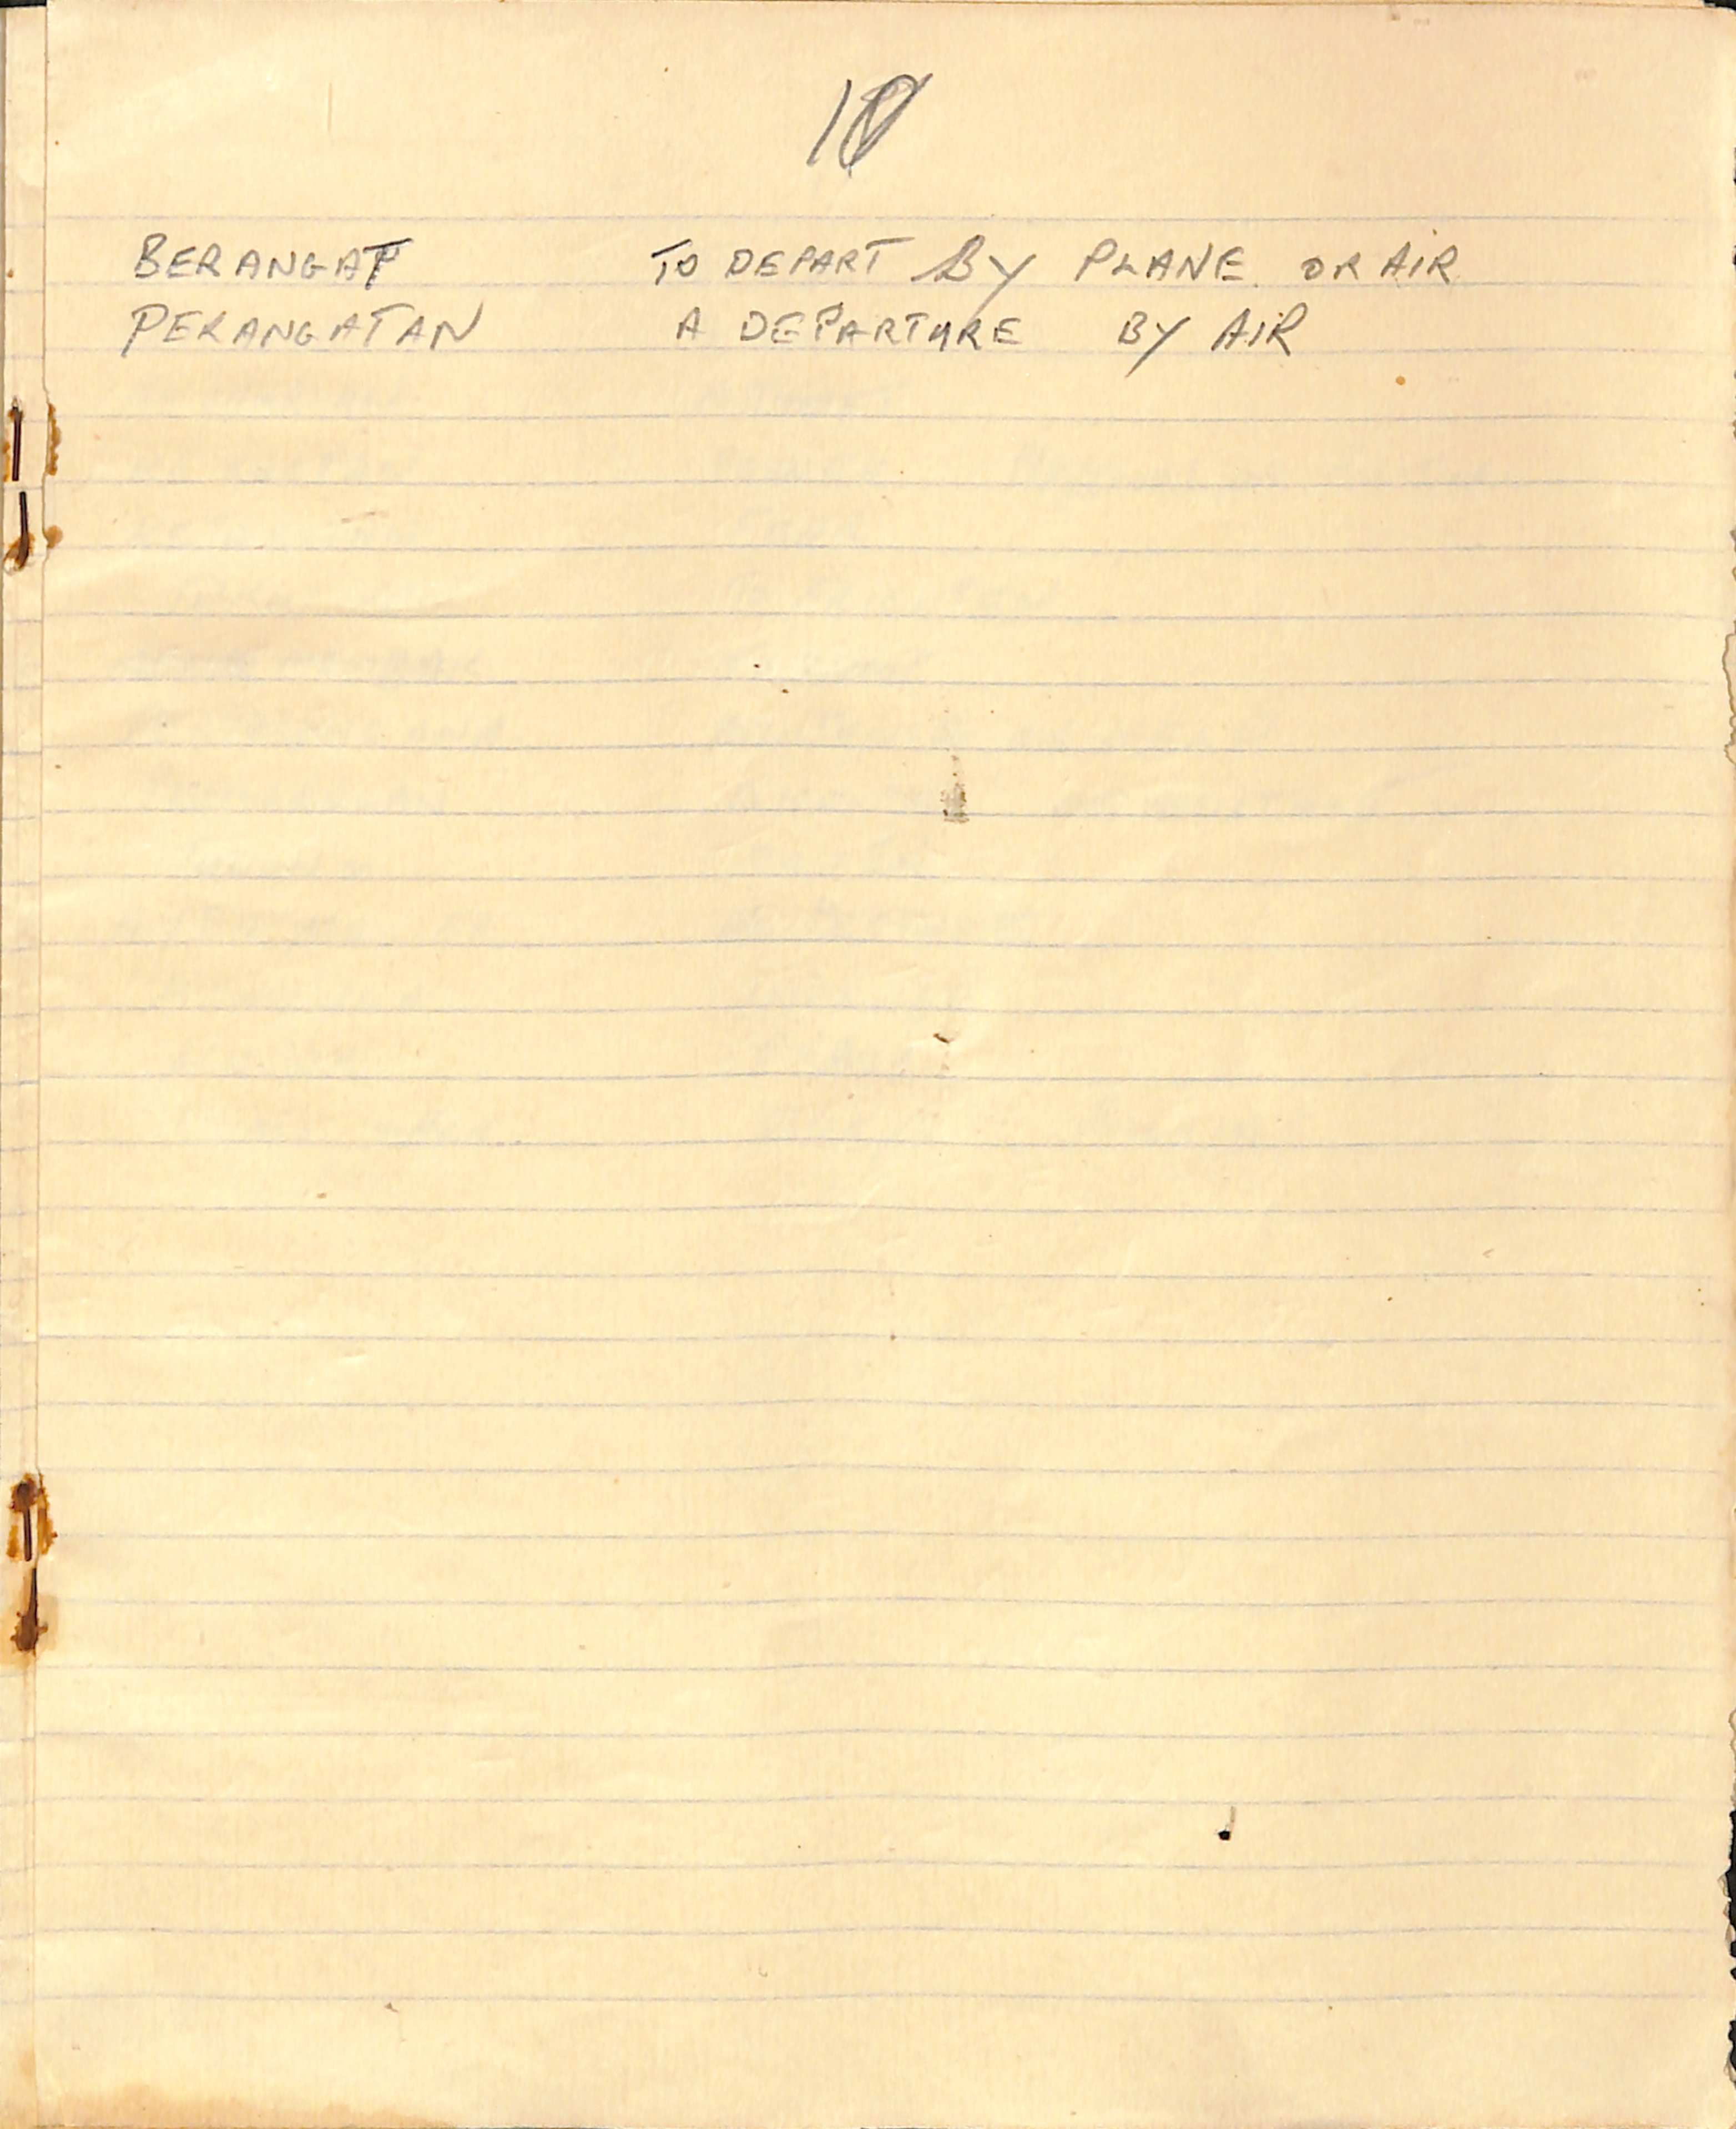 10
BERANGAT TO DEPART BY PLANE OR AIR
PERANGATAN A DEPARTURE BY AIR